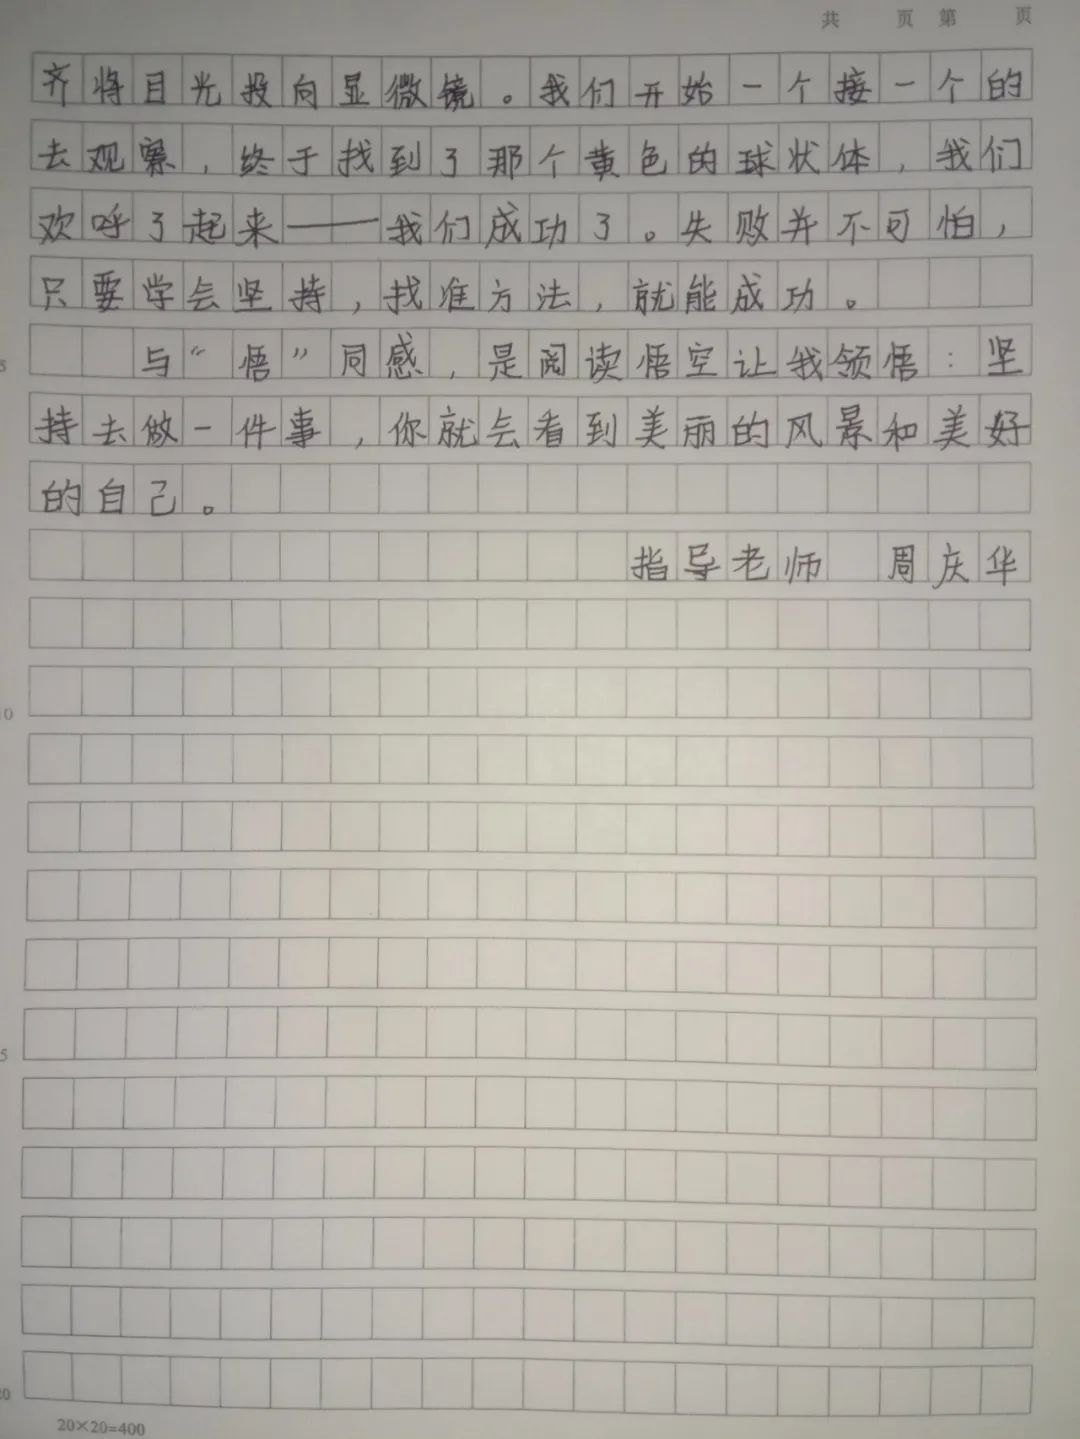 共 页 第 页
齐将目光投向显微镜。我们开始一个接一个的
去观察，终于找到了那个黄色的球状体，我们
欢呼了起来——我们成功了。失败并不可怕，
只要学会坚持，找准方法，就能成功。
5
与“悟”同感，是阅读悟空让我领悟：坚
持去做一件事，你就会看到美丽的风景和美好
的自己。
指导老师 周庆华
10
5
20
20×20=400